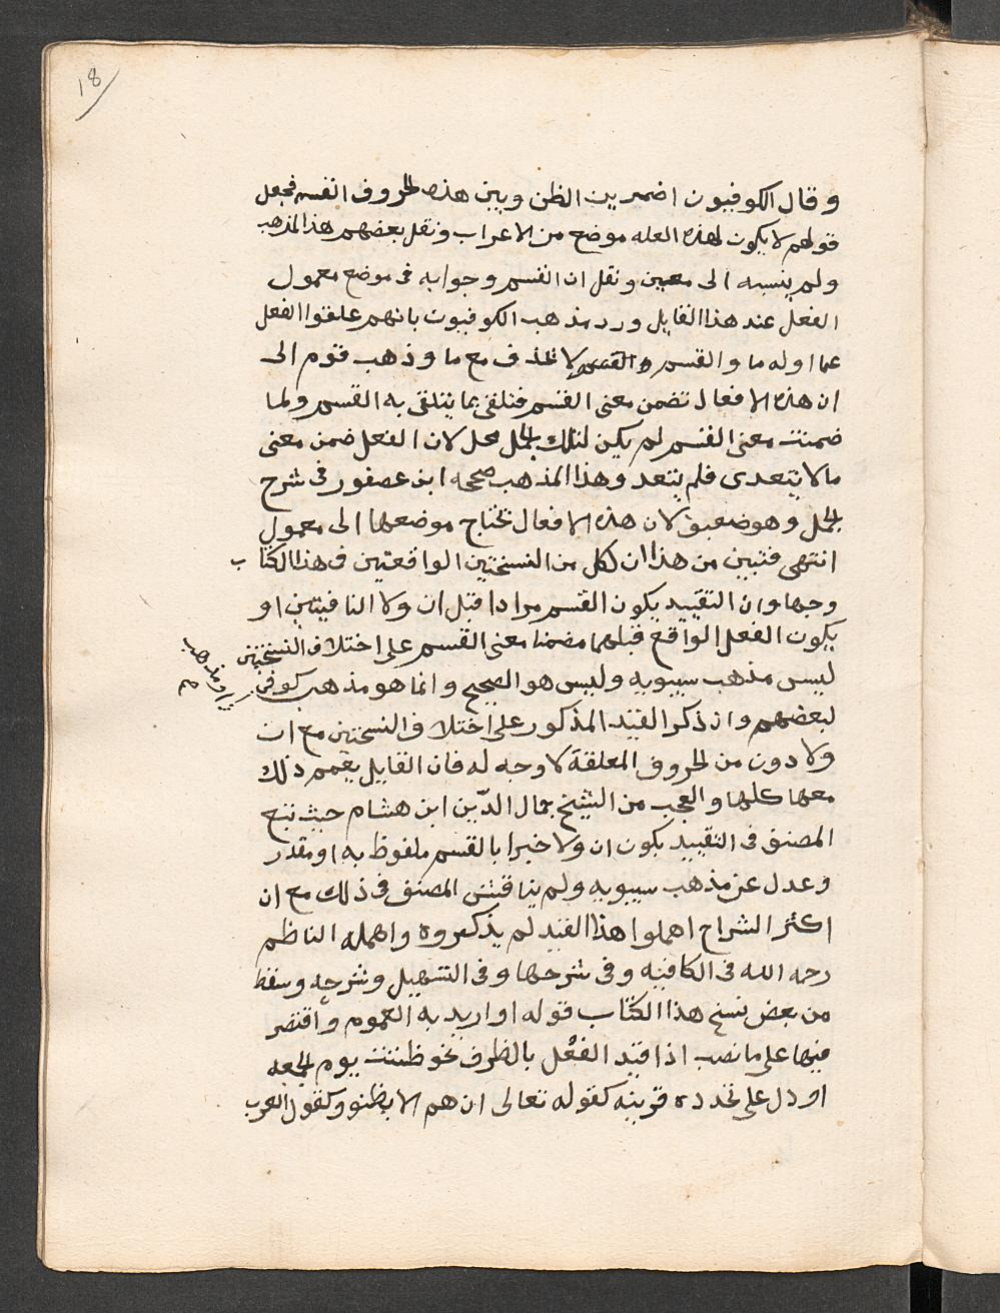 18
وقال الكوفيون اضمر بين الظن وبين هذه الحروف القسم فجعل
قولهم لا يكون لهذه العله موضع من الاعراب ونقل بعضهم هذا المذهب
ولم ينسبه الى معين ونقل ان القسم وجوابه فى موضع معمول
الفعل عند هذا القايل ورد مذهب الكوفيون بانهم علقوا الفعل
عما اوله ما والقسم لا تحذف مع ما وذهب قوم الى
ان هذه الافعال تضمن معنى القسم فتلقى بما يتلقى به القسم ولما
ضمنت معنى القسم لم يكن لتلك الجمل محل لان الفعل ضمن معنى
ما لا يتعدى فلم يتعد وهذا المذهب صححه ابن عصفور فى شرح
الجمل وهو ضعيف لان هذه الافعال تحتاج موضعها الى معمول
انتهى فتبين من هذا ان لكل من النسختين الواقعتين فى هذا الكتاب
وجها وان التقييد بكون القسم مرادا قبل ان ولا النافيتين او
بكون الفعل الواقع قبلهما مضمنا معنى القسم على اختلاف النسختين
ليس مذهب سيبويه وليس هو الصحيح وانما هو مذهب كوفى
او مذهب
لبعضهم وان ذكر القيد المذكور على اختلاف النسختين مع ان
ولا دون من الحروف المعلقة لا وجه له فان القايل يعمم ذلك
معها كلها والعجب من الشيخ جمال الدّين ابن هشام حيث تبع
المصنف فى التقييد بكون ان ولا خبرا بالقسم ملفوظ به او مقدر
وعدل عن مذهب سيبويه ولم يناقش المصنف فى ذلك مع ان
اكثر الشراح اهملوا هذا القيد لم يذكروه واهمله الناظم
رحمه الله فى الكافيه وفى شرحها وفى التسهيل وشرحه وسقط
من بعض نسخ هذا الكتاب قوله او اريد به العموم واقتصر
فيها على ما نصب اذا قيد الفعل بالظرف نحو ظننت يوم الجمعه
او دل على تجدده قرينه كقوله تعالى ان هم الا يظنو وكقول العرب